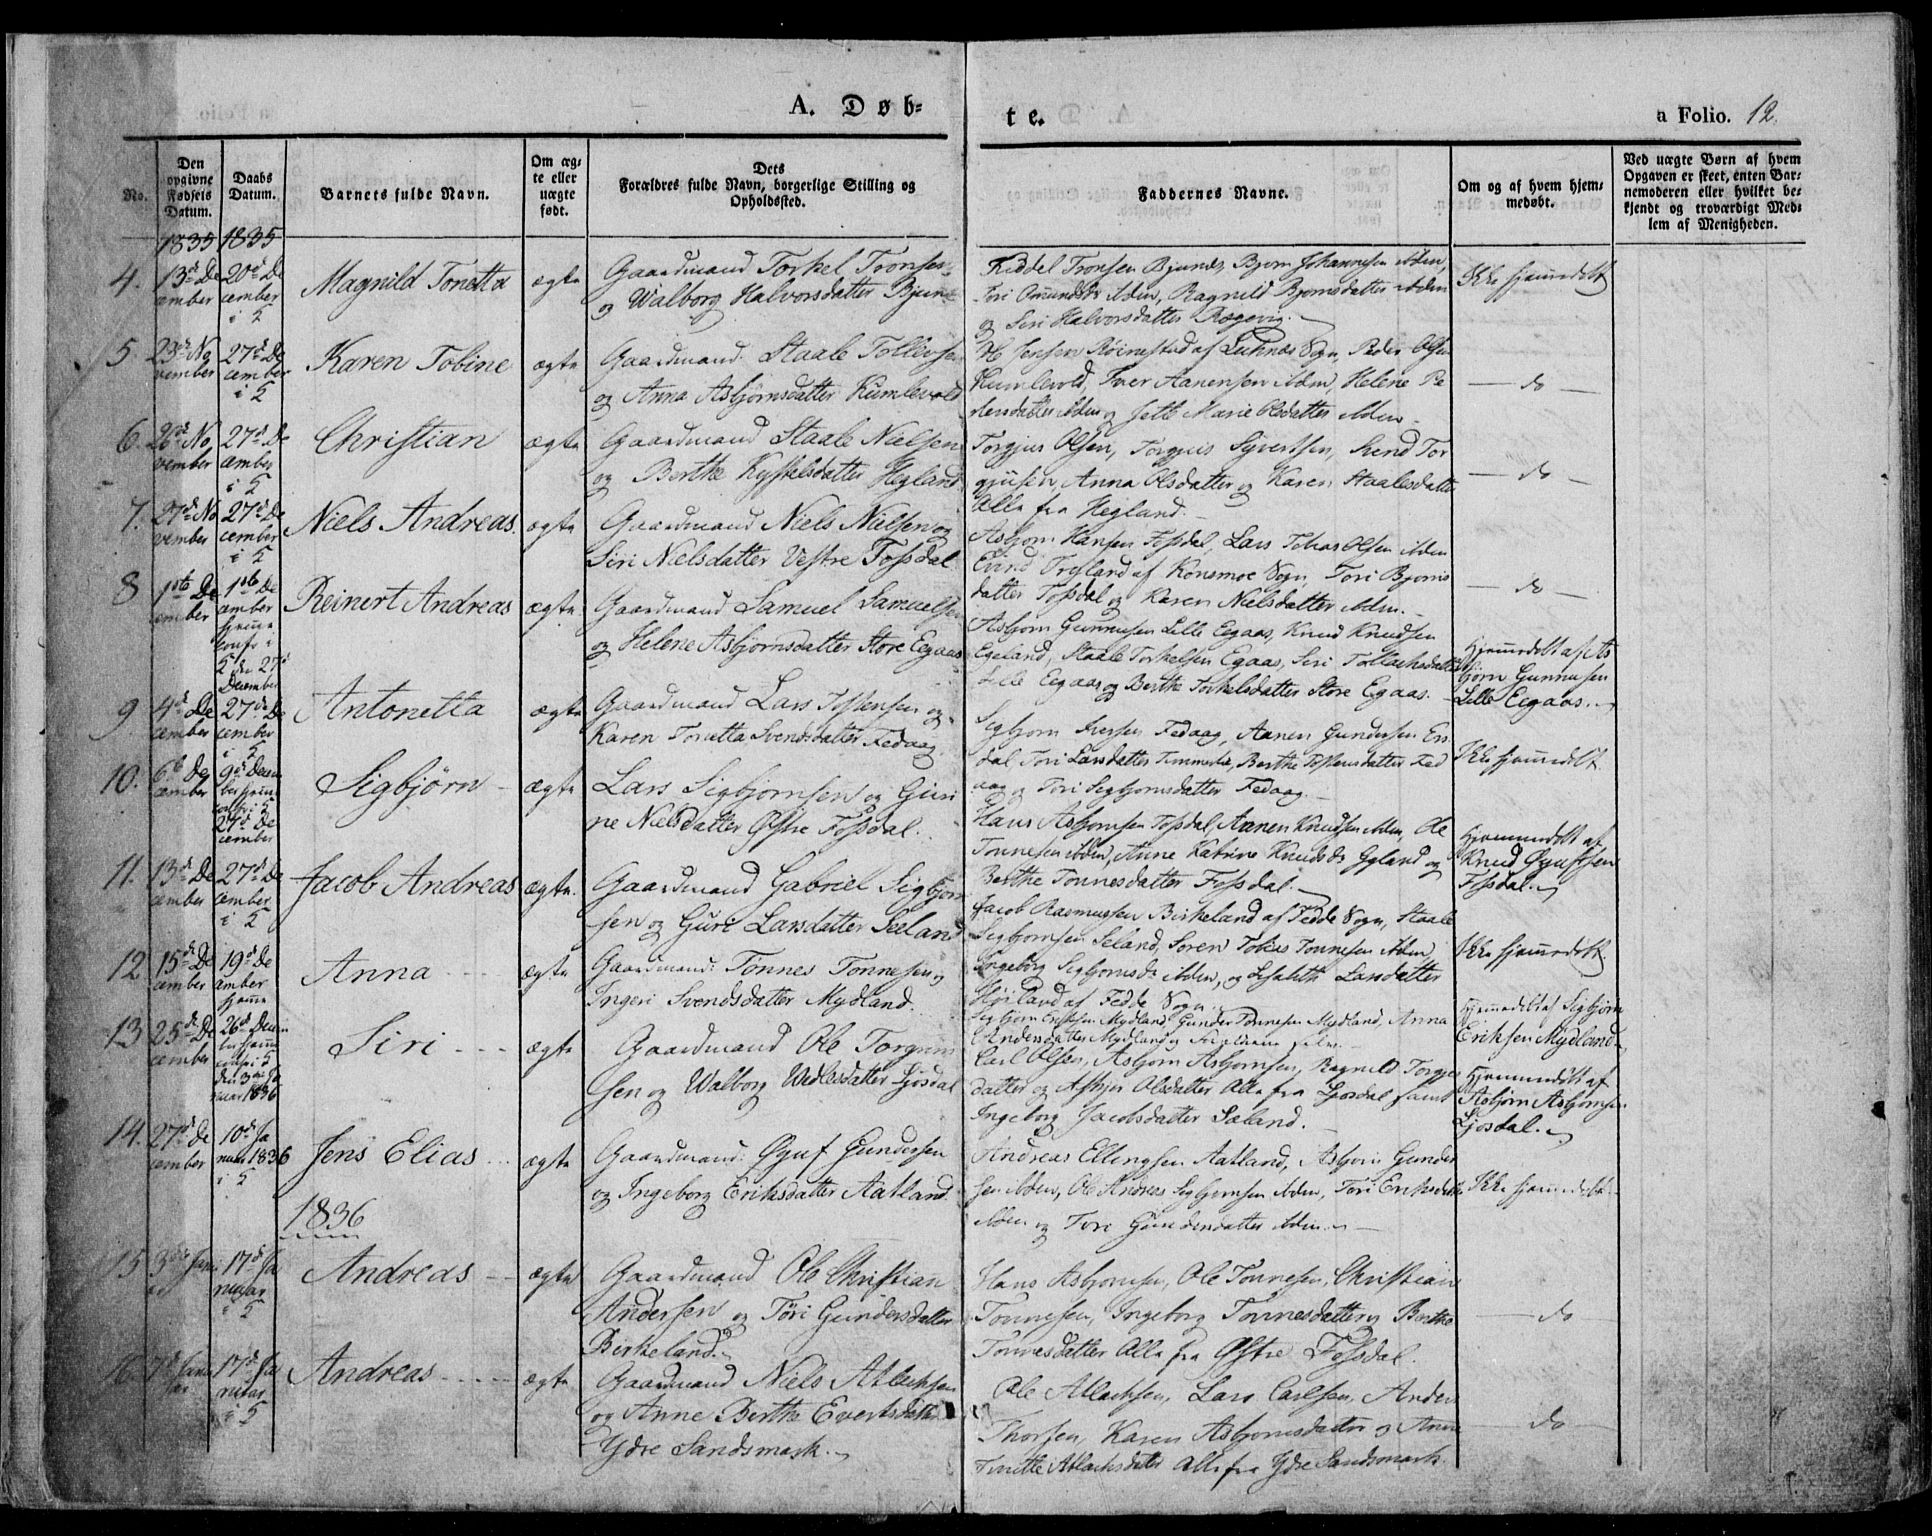 A. Døb-
te.
a Folio. 12.
No.
Den opgivne Fødsels Datum.
Daabs Datum.
Barnets fulde Navn.
Om ægte eller uægte født.
Dets Forældres fulde Navn, borgerlige Stilling og Opholdssted.
Faddernes Navne.
Om og af hvem hjemmedøbt.
Ved uægte Børn af hvem Opgaven er skeet, enten Barnemoderen eller hvilket bekjendt og troværdigt Medlem af Menigheden.
1835 1835
4. 13de De
cember
20de De
cember
i
Magnild Tonetta
ægte
Gaardmand Torkel Tronsen
og Walborg Halvorsdatter
Keddel Tronsen Bjunes, Bjørn Johannesen ibden,
Tori ibden, Ragnild Bjørnsdatter ibden
og Siri Halvorsdatter
Ikke hjemmedøbt
5 23de No
vember
27de De
cember
i
Karen Tobine
ægte
Gaardmand Staale Tollevsen
og Anna Asbjørnsdatter Kumlevold
Ole Jensen Røinestad af Sogn, Peder Olsen
Kumlevold, Iver Aanensen ibden, Helene Pe
dersdatter ibden og Marie Olsdatter ibden
do
6. 26de No
vember
27de De
cember
i
Christian
ægte
Gaardmand Staale Nielsen
og Berthe Hegland
Torgjus Olsen, Torgjus Syvertsen, Svend Tor
gjusen, Anna Olsdatter og Karen Staalesdatter
Alle fra Hegland.
do
7. 27de No
vember
27de De
cember
i
Niels Andreas.
ægte
Gaardmand Niels Nielsen og
Siri Nielsdatter Vestre Fossdal
Asbjørn Hansen Fossdal, Lars Tobias Olsen ibden
Evind af Konsmoe Sogn, Tori Bjørns
datter Fossdal og Karen Nielsdatter ibden.
do
8 1ste De
cember
1ste De
cember
hjemme
conf. i
den 27de
December
Reinert Andreas
ægte
Gaardmand Samuel Samuelsen
og Helene Asbjørnsdatter Store Eegaas
Asbjørn Gunnusen Lille Eegaas, Knud Knudsen
Egeland, Staale Torkelsen Egaas, Siri
Lille Eegaas og Berthe Torkelsdatter Store Egaas.
Hjemmedøbt af As
bjørn Gunnusen
Lille Eegaas.
9 4de De
cember
27de De
cember
i
Antonetta
ægte
Gaardmand Lars Tostensen og
Karen Tonetta Svendsdatter Fedaag
Sigbjørn Iversen Fedaag, Aanen Gundersen En
dal, Tori Larsdatter Berthe Tostensdatter Fed
aag og Tori Sigbjørnsdatter Fedaag.
Ikke hjemmedøbt
10. 6te De
cember
9de Decem
ber hjemme
conf. i
27de De
cember
Sigbjørn
ægte
Lars Sigbjørnsen og Guri
ne Nielsdatter Østre Fossdal.
Hans Asbjørnsen Fossdal, Aanen Knudsen ibden, Ole
Tønnesen ibden, Anne Katrine Gyland og
Berthe Tønnesdatter Fossdal.
Hjemmedøbt af
Knud
Fossdal.
11. 13de De
cember
27de De
cember
i
Jacob Andreas
ægte.
Gaardmand Gabriel Sigbjørn
sen og Guri Larsdatter Seeland
Jacob Rasmussen Birkeland af Fedde Sogn, Staale
Sigbjørnsen Seland, Søren Tobias Tønnesen ibden,
Ingeborg ibden, og Larsdatter
Høiland af Fedde Sogn.
Ikke hjemmedøbt
12 15de De
cember
19de De
cember
hjemme
Anna
ægte
Gaardmand: Tønnes Tønnesen og
Ingeri Svendsdatter Mydland.
Sigbjørn Eriksen Mydland, Gunder Tønnesen Mydland, Anna
Andersdatter Mydland og Forældrene selv.
Hjemmedøbt af Sigbjørn
Eriksen Mydland
13 25de De
cember
26de Decem
ber hjemme
conf. i
den 3die Ja
nuar 1836
Siri
ægte
Gaardmand Ole Torgrim
sen og Walborg Vedlesdatter Ljosdal
Carl Olsen, Asbjørn Asbjørnsen, Ragnild
datter og Olsdatter Alle fra Ljosdal samt
Ingeborg Jacobsdatter Sæland.
Hjemmedøbt af
Asbjørn Asbjørnsen
Ljosdal.
14. 27de De
cember
10de Ja
nuar 1836
i
Jens Elias
ægte
Gaardmand: Gundersen
og Ingeborg Eriksdatter Aatland.
Andreas Ellingsen Aatland, Asbjørn Gunder
sen ibden, Ole Andreas Sigbjørnsen ibden, Tori Eriksdatter
ibden og Tori Gundersdatter ibden.
Ikke hjemmedøbt
1836
15 3die Janu
ar
17de Ja
nuar
i
Andreas
ægte
Gaardmand Ole Christian
Andersen og Tori Gundersdatter
Birkeland.
Hans Asbjørnsen, Ole Tønnesen, Christian
Tønnesen, Ingeborg Tønnesdatter og Berthe
Tønnesdatter Alle fra Østre Fossdal.
do
16. 7de Janu
ar
17de Ja
nuar
i
Andreas
ægte
Gaardmand Niels Atlaksen
og Anne Berthe Evertsdatter
Ydre Sandsmark.
Ole Atlacksen, Lars Carlsen, Anders
Thorsen, Karen Asbjørnsdatter og Anne
Atlacksdatter Alle fra Ydre Sandsmark.
do